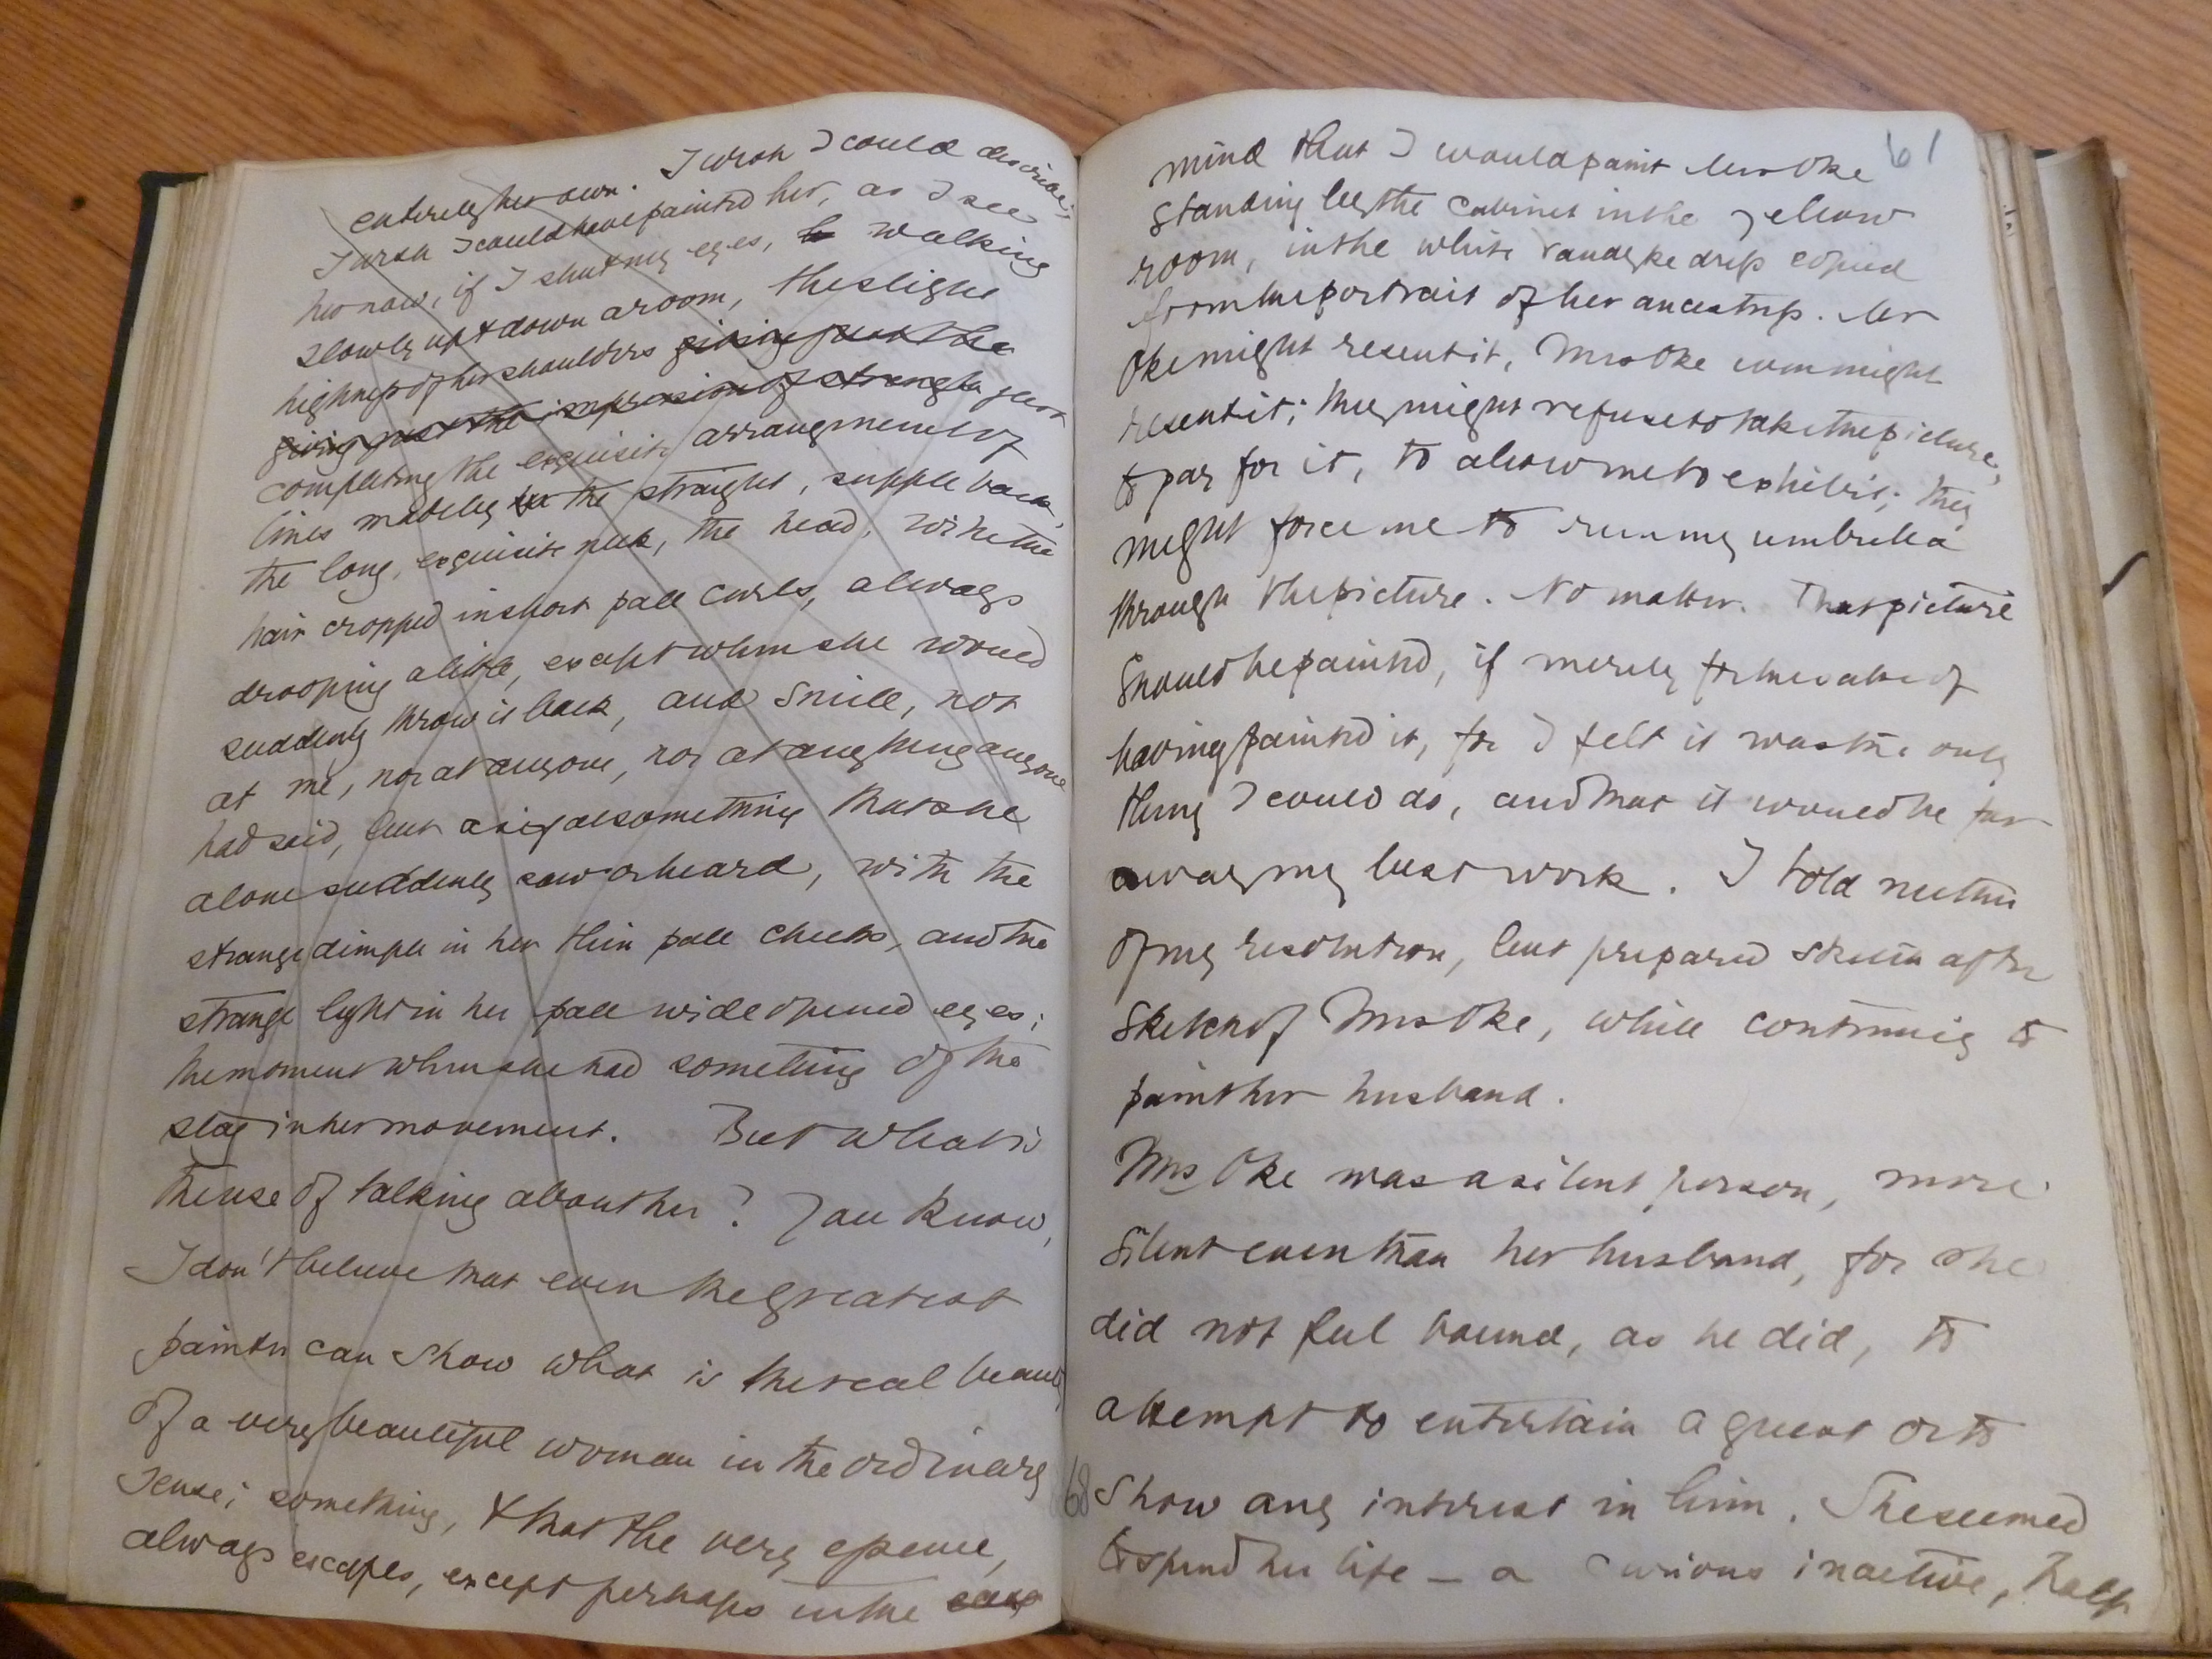 entirely her own. I wish I could describe it
I wish I could have painted her, as I see
her now, if I shut my eyes, walking
slowly up & down a room, the slight
highness of her shoulders giving just the
giving just the impression of strength just
completing the exquisite arrangement of
lines made by the straight, supple back,
the long, exquisite neck, the head, with the
hair cropped in short pale curls, always
drooping a little, except when she would
suddenly throw it back, and smile, not
at me, nor at anyone, nor at anything anyone
had said, but as if at something that she
alone suddenly saw or heard, with the
strange dimple in her thin pale cheeks, and the
strange light in her pale wide opened eyes;
the moment when she had something of the
stag in her movement. But what is
the use of talking about her? You know,
I don't believe that even the greatest
painter can show what is the real beauty
of a very beautiful woman in the ordinary
sense; something, & that the very essence,
always escapes, except perhaps in the case
61
mind that I would paint Mrs Oke
standing by the cabinet in the yellow
room, in the white Vandyke dress copied
from the portrait of her ancestress. Mr
Oke might resent it, Mrs Oke even might
resent it; they might refuse to take the picture,
to pay for it, to allow me to exhibit; they
might force me to run my umbrella
through the picture. No matter. That picture
should be painted, if merely for the sake of
having painted it, for I felt it was the only
thing I could do, and that it would be far
away my best work. I told neither
of my resolution, but prepared sketch after
sketch of Mrs Oke, while continuing to
paint her husband.
Mrs Oke was a silent person, more
silent even than her husband, for she
did not feel bound, as he did, to
attempt to entertain a guest or to
68 show any interest in him. She seemed
to spend her life – a curious inactive, half